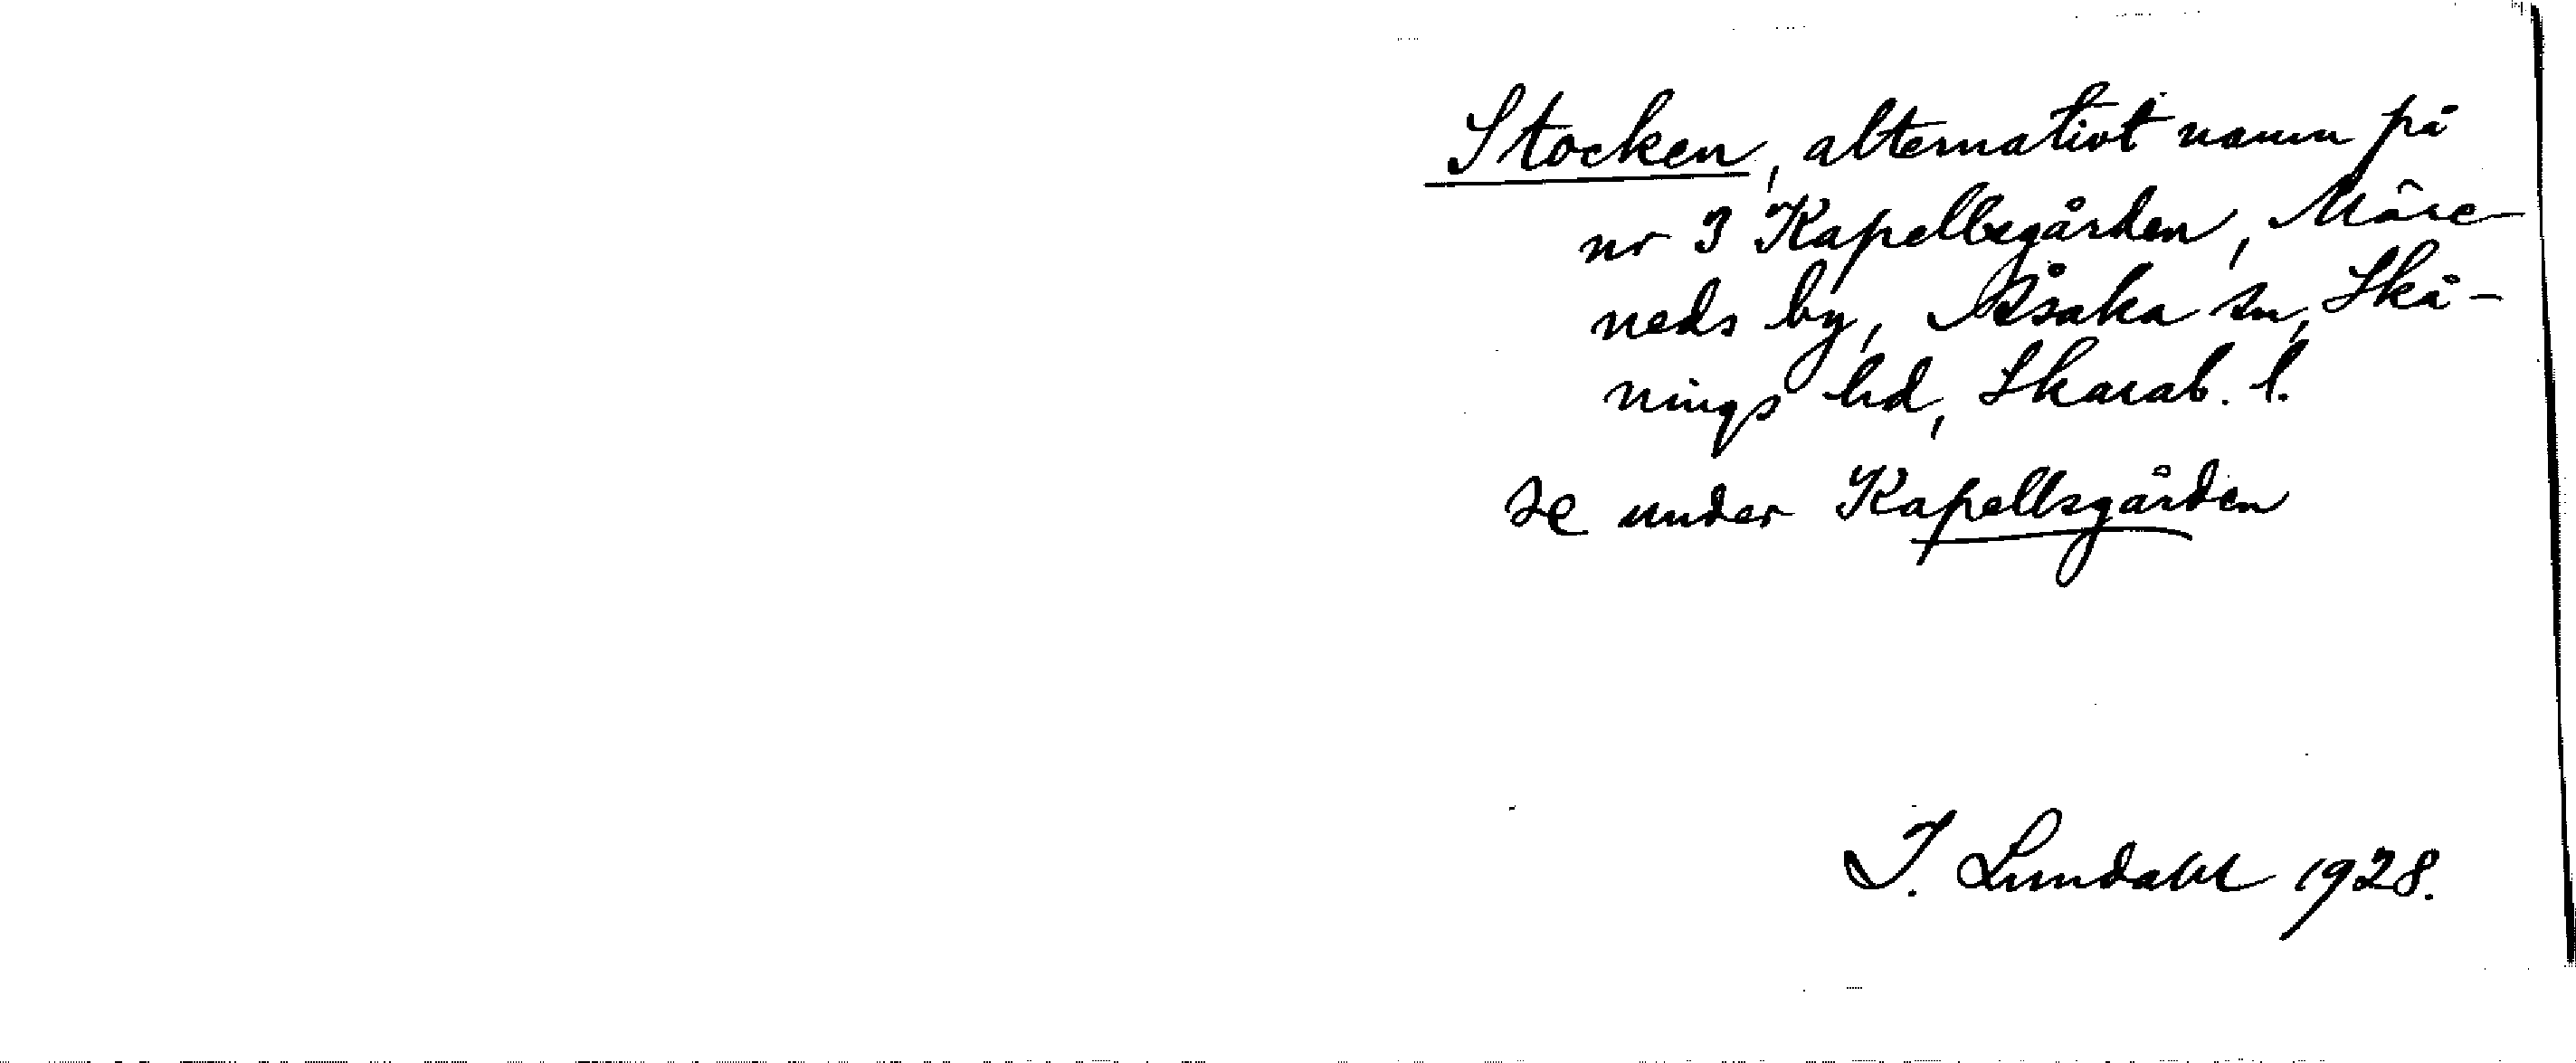 Stocken, alternativt namn på
nr 3 Kapellsgården, Måre-
neds by, Åsaka sn, Skå-
nings hd, Skarab. l.
se under Kapellsgården
I. Lundahl 1928.